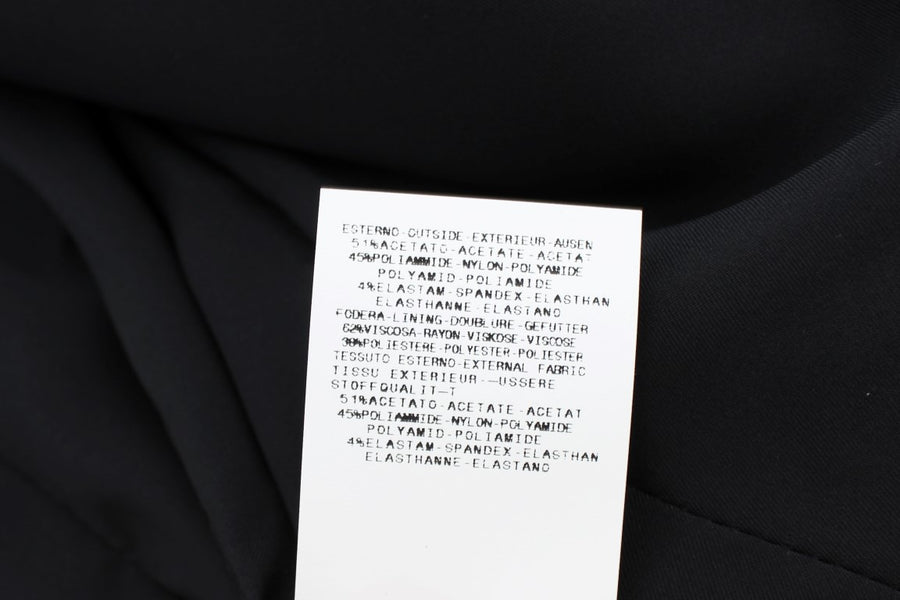 ESTERNO-OUTSIDE-EXTERIEUR-AUSEN
51%ACETATO-ACETATE-ACETAT
45%POLIAMMIDE-NYLON-POLYAMIDE
POLYAMID-POLIAMIDE
4%ELASTAM-SPANDEX-ELASTHAN
ELASTHANNE-ELASTANO
FODERA-LINING-DOUBLURE-GEFUTTER
62%VISCOSA-RAYON-VISKOSE-VISCOSE
38%POLIESTERE-POLYESTER-POLIESTER
TESSUTO ESTERNO-EXTERNAL FABRIC
TISSU EXTERIEUR-—USSERE
STOFFQUALIT—T
51%ACETATO-ACETATE-ACETAT
45%POLIAMMIDE-NYLON-POLYAMIDE
POLYAMID-POLIAMIDE
4%ELASTAM-SPANDEX-ELASTHAN
ELASTHANNE-ELASTANO